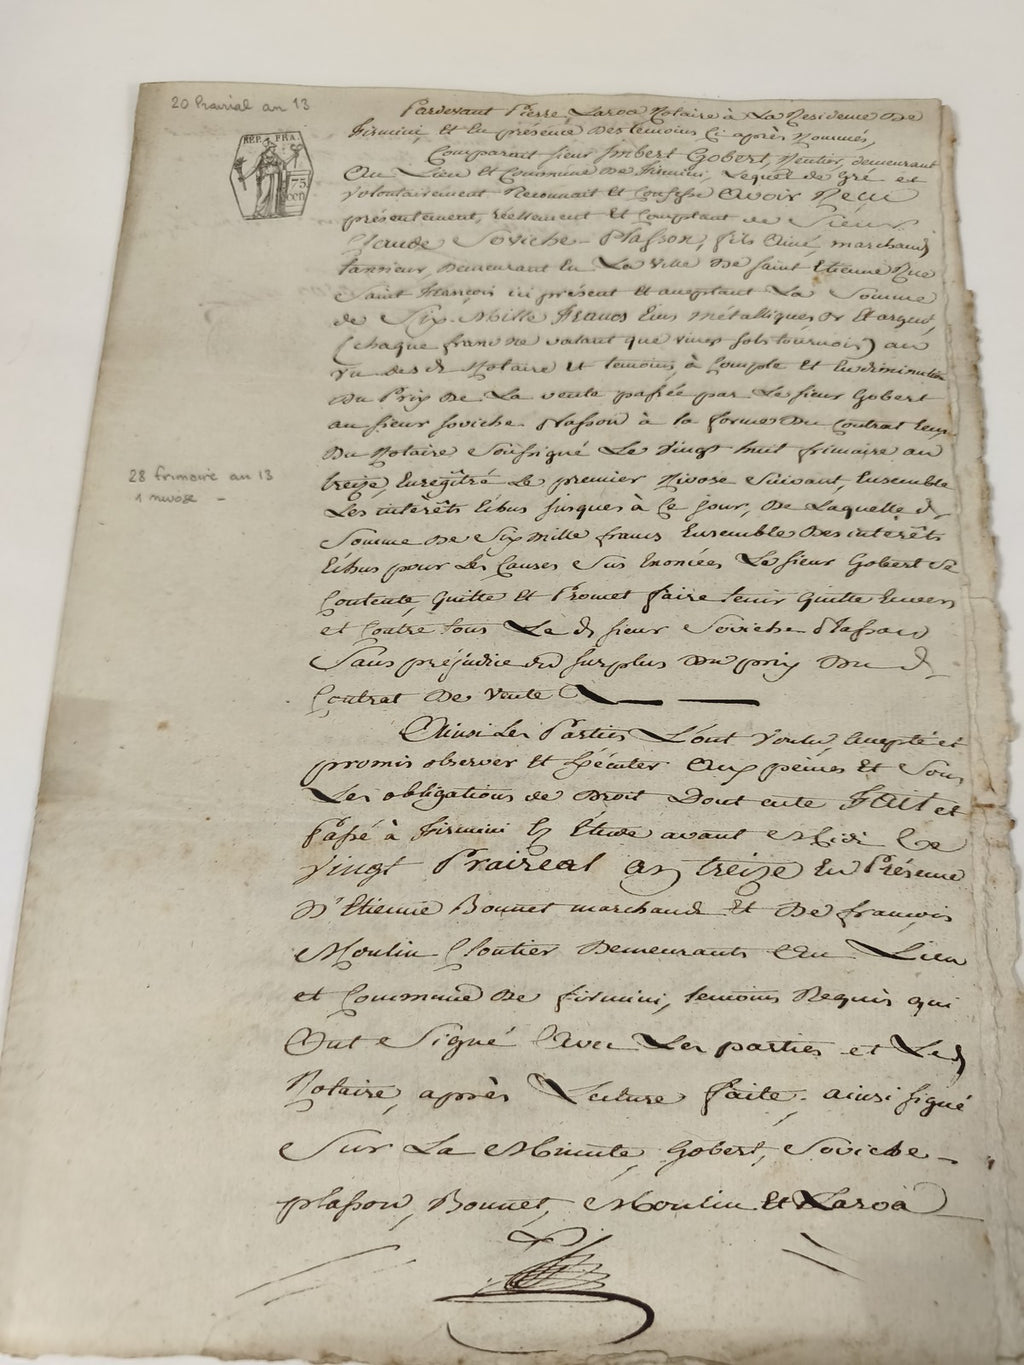 20 Prairial an 13
REP. FRA.
75
cen
Pardevant Pierre Laroa Notaire à La Residence De
Firmini, Et En présence Des temoins Ci après Nommés,
Comparait sieur Imbert Gobert, Rentier, demeurant
Au Lieu Et Commune De Firmini, Lequel de gré et
volontairement Reconnait Et Confesse Avoir Reçu
présentement, réellement Et Comptant de Sieur
Claude Soviche-Plasson, fils Ainé, marchand
tanneur, Demeurant En La ville De saint Etienne Rue
Saint François ici présent Et aceptant La Somme
de Six Mille Francs Ecus métalliques Or Et argent,
(chaque franc ne valant que vingt sols tournois) au
vu des d. Notaire Et temoins à Compte Et En diminution
Du Prix De La vente passée par Le sieur Gobert
au sieur soviche plasson à la forme Du Contrat Reçu
Du Notaire Soussigné Le vingt huit frimaire an
treize, Enregîtré Le premier Nivose Suivant, Ensemble
28 frimaire an 13
1 nivose -
Les interêts Echus jusques à Ce jour, De Laquelle d.
Somme De Six mille francs Ensemble Des interêts
Echus pour Les Causes Sus Enoncées Le sieur Gobert Se
Contente, Quitte Et Promet faire tenir Quitte Envers
et Contre tous Le d. sieur Soviche plasson
Sans préjudice du surplus Du prix Du d.
Contrat De vente
Ainsi Les Parties L'ont voulu, acepté et
promis observer Et Exécuter Aux peines Et Sous
Les obligations de Droit Dont acte Fait et
Passé à Firmini En Etude avant Midi Le
vingt Praireal an treize En Présence
D'Etienne Bonnet marchand Et De françois
Moulin Cloutier Demeurants Au Lieu
et Commune De firmini, temoins Requis qui
Ont Signé Avec Les parties et Led.
Notaire, après Lecture faite; ainsi signé
Sur La Minute, Gobert, Soviche-
plasson, Bonnet, Moulin Et Laroa